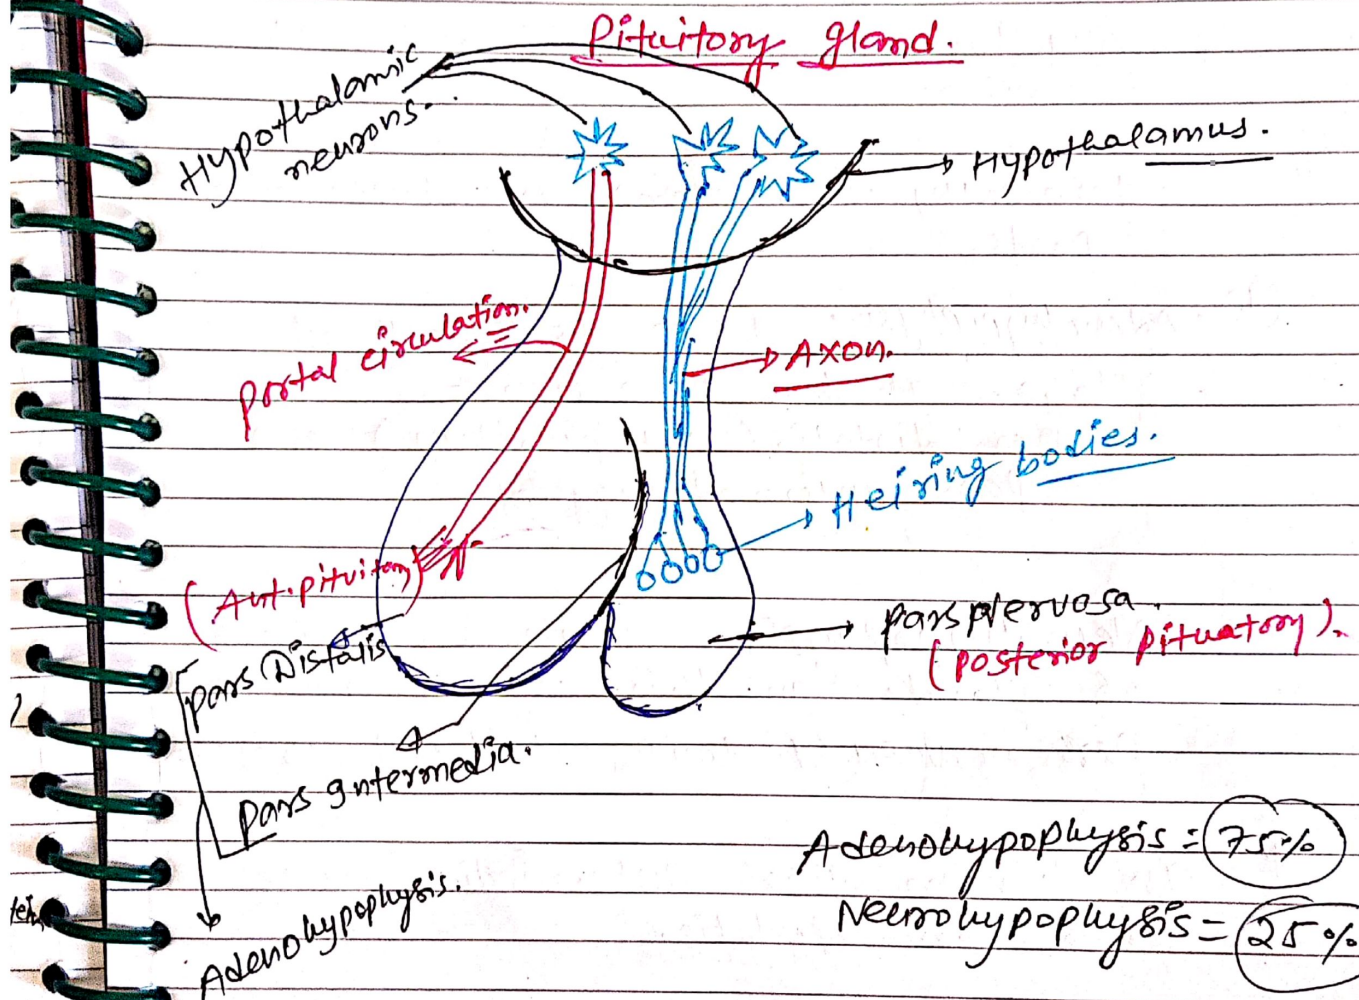 Pituitory gland.
Hypothalamic
neurons.
Hypothalamus.
Portal circulation.
Axon.
Heiring bodies.
(Ant. pituitory)
Pars Distalis
Pars Nervosa.
(Posterior pituatory).
Pars Intermedia.
Adenohypophysis = 75%
Neurohypophysis = 25%
Adenohypophysis.